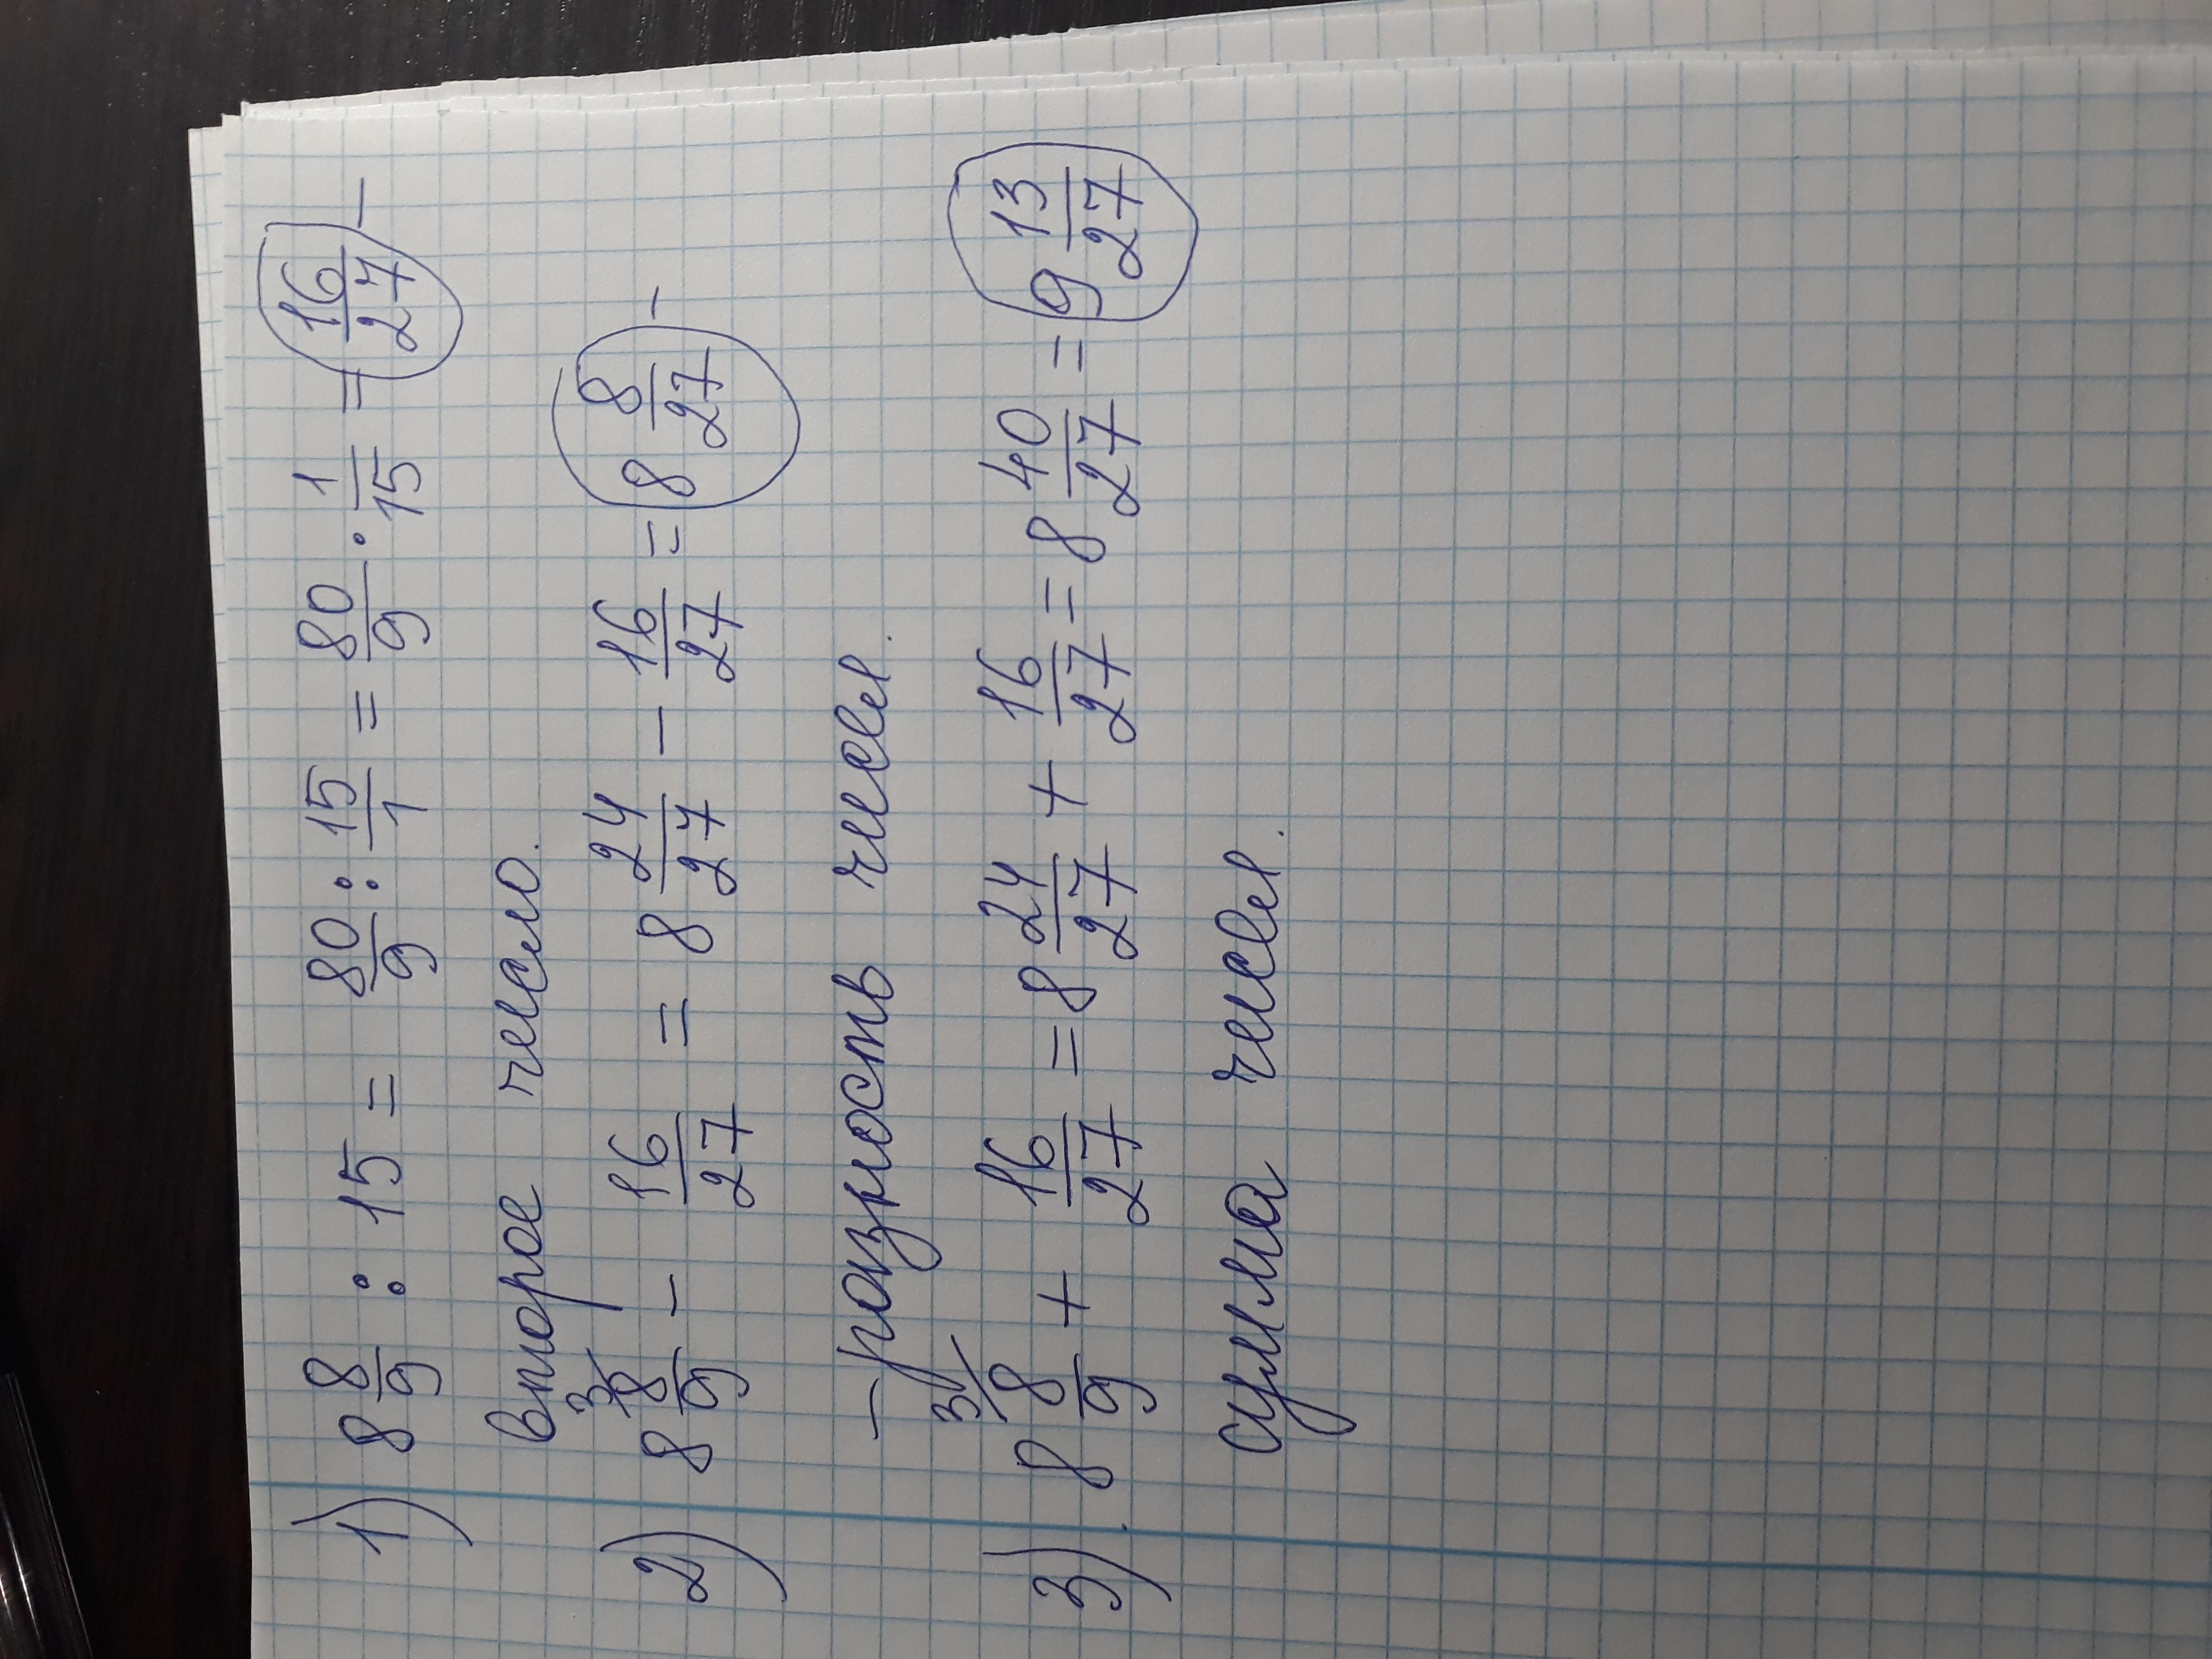 1) 8 8/9 : 15 = 80/9 : 15/1 = 80/9 · 1/15 = 16/27 –
второе число.
2) 8 8/9 ³⁄ – 16/27 = 8 24/27 – 16/27 = 8 8/27 –
– разность чисел.
3) 8 8/9 ³⁄ + 16/27 = 8 24/27 + 16/27 = 8 40/27 = 9 13/27
сумма чисел.